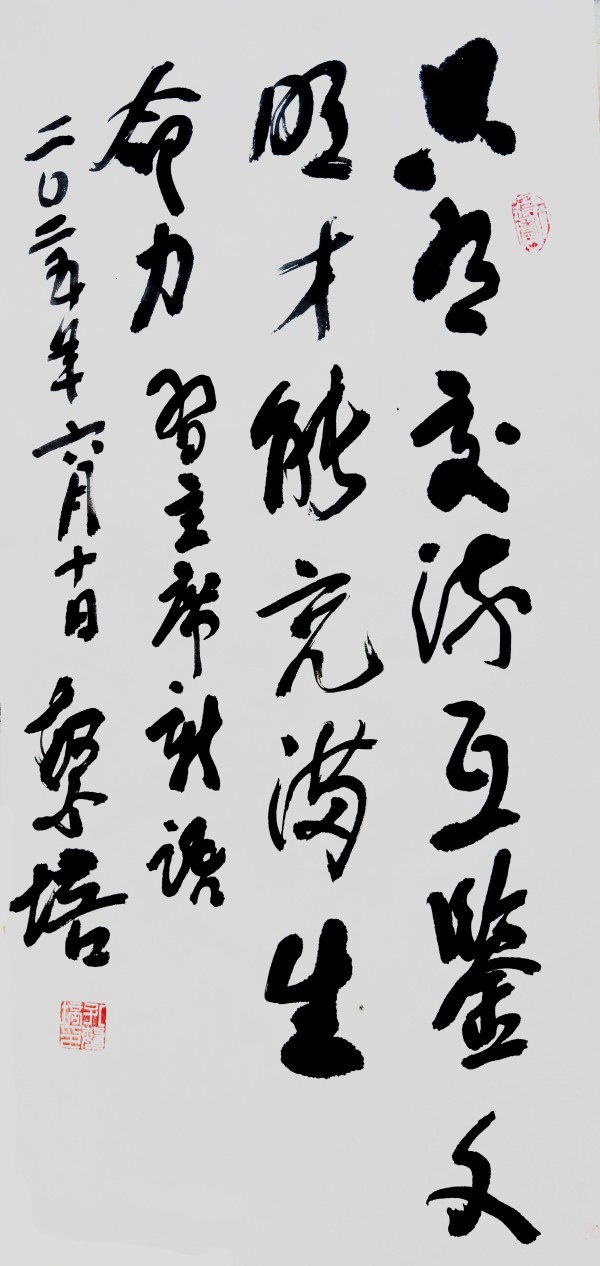 只有交流互鉴文
明才能充满生
命力 習主席新語
二〇二五年六月十日 繁培